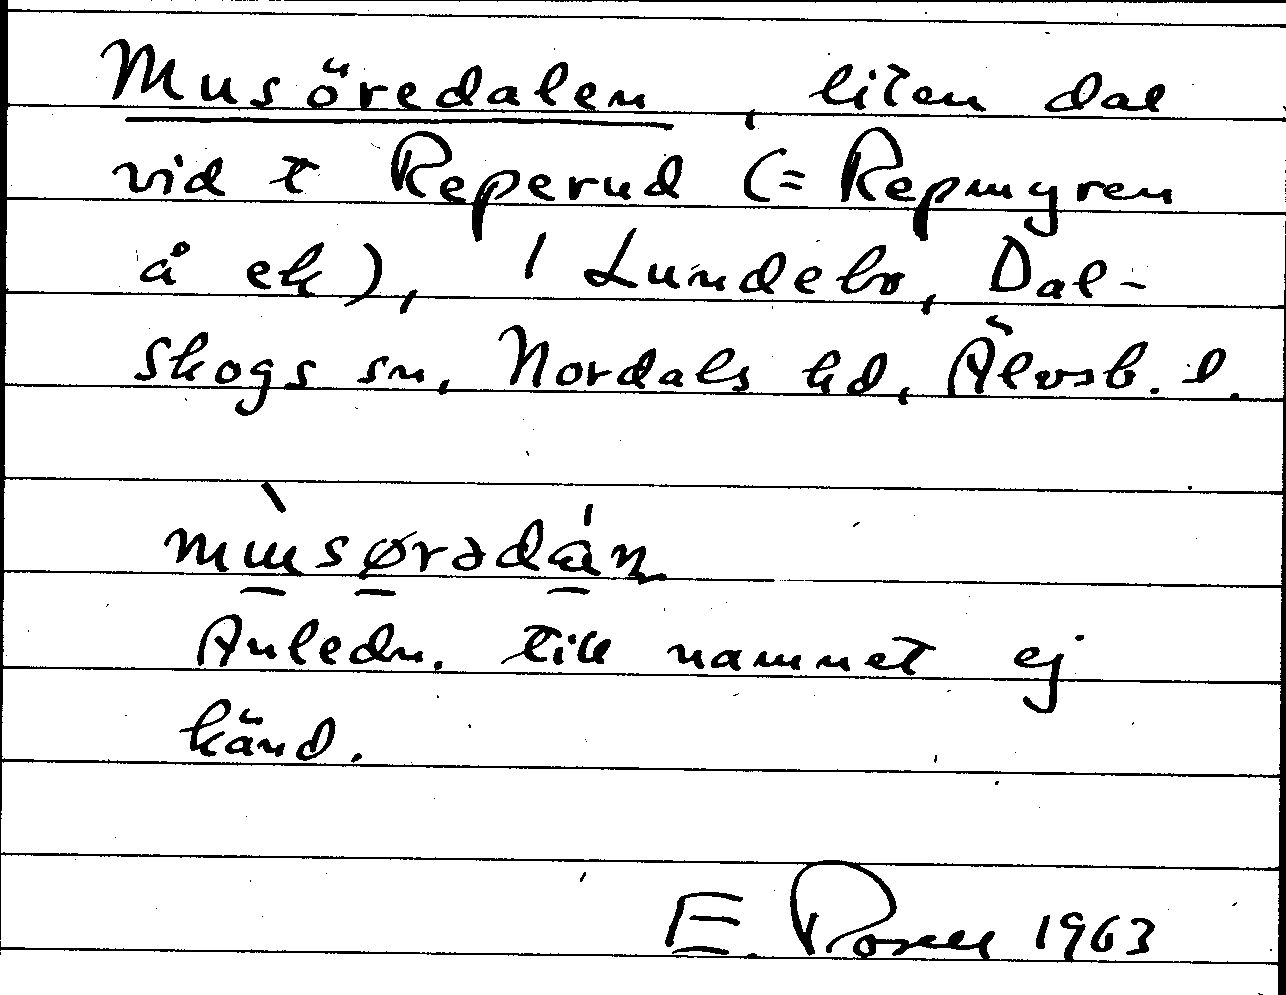 Musöredalen, liten dal
vid t Reperud (= Repmyren
å ek), 1 Lundebo, Dal-
skogs sn, Nordals hd, Älvsb. l.
mùsørədán
Anledn. till namnet ej
känd.
E. 1963